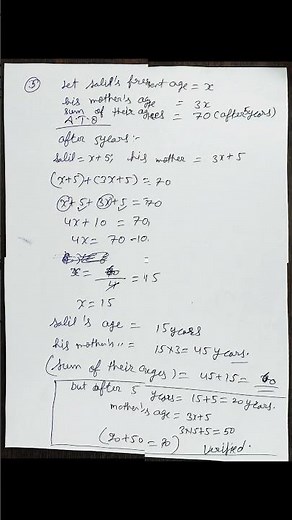 ③ Let Salil's present age = x
his mother's age = 3x
sum of their ages = 70 (after 5 years)
A.T.Q
after 5 years :-
Salil = x+5; his mother = 3x+5
(x+5)+(3x+5)=70
x+5+3x+5=70
4x+10 = 70,
4x = 70-10.
x = 60/4 = 15
x = 15
Salil's age = 15 years
his mother's '' = 15×3 = 45 years.
(Sum of their ages) = 45+15 = 60
but after 5 years = 15+5 = 20 years.
mother's age = 3x+5
3×15+5 = 50
(20+50 = 70) Verified.